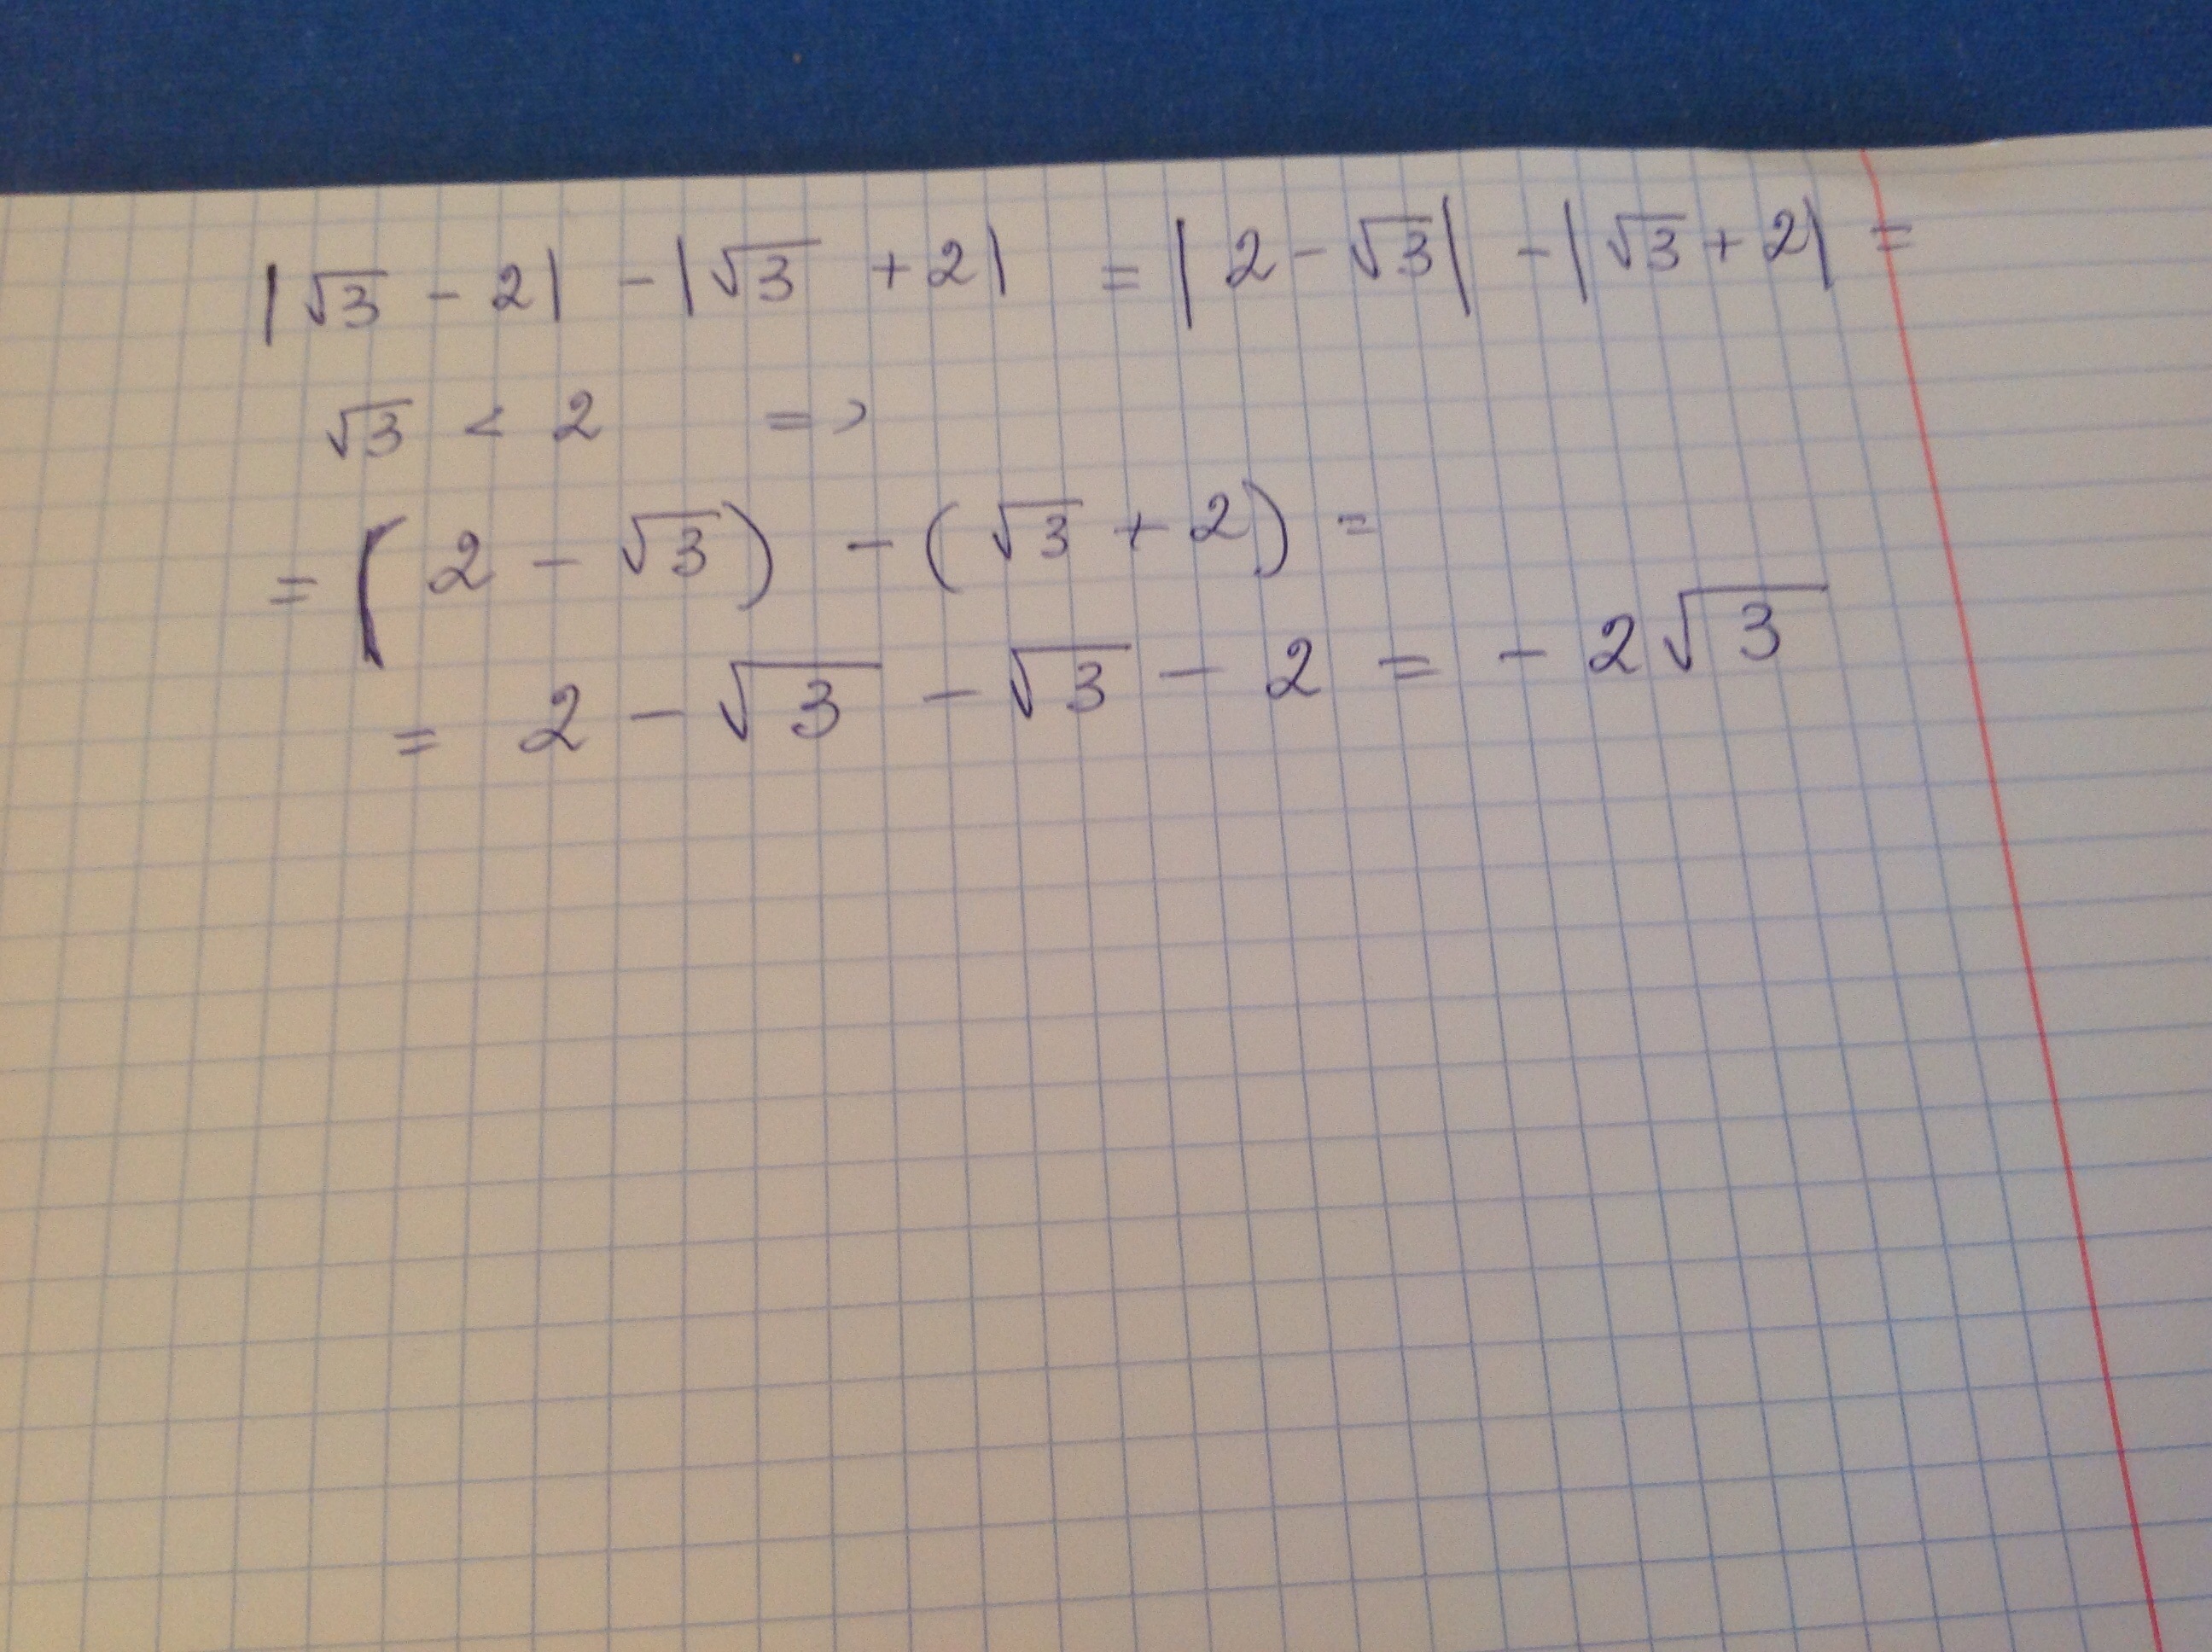 |√3 - 2| - |√3 + 2| = |2 - √3| - |√3 + 2| =
√3 < 2 =>
= (2 - √3) - (√3 + 2) =
= 2 - √3 - √3 - 2 = - 2√3